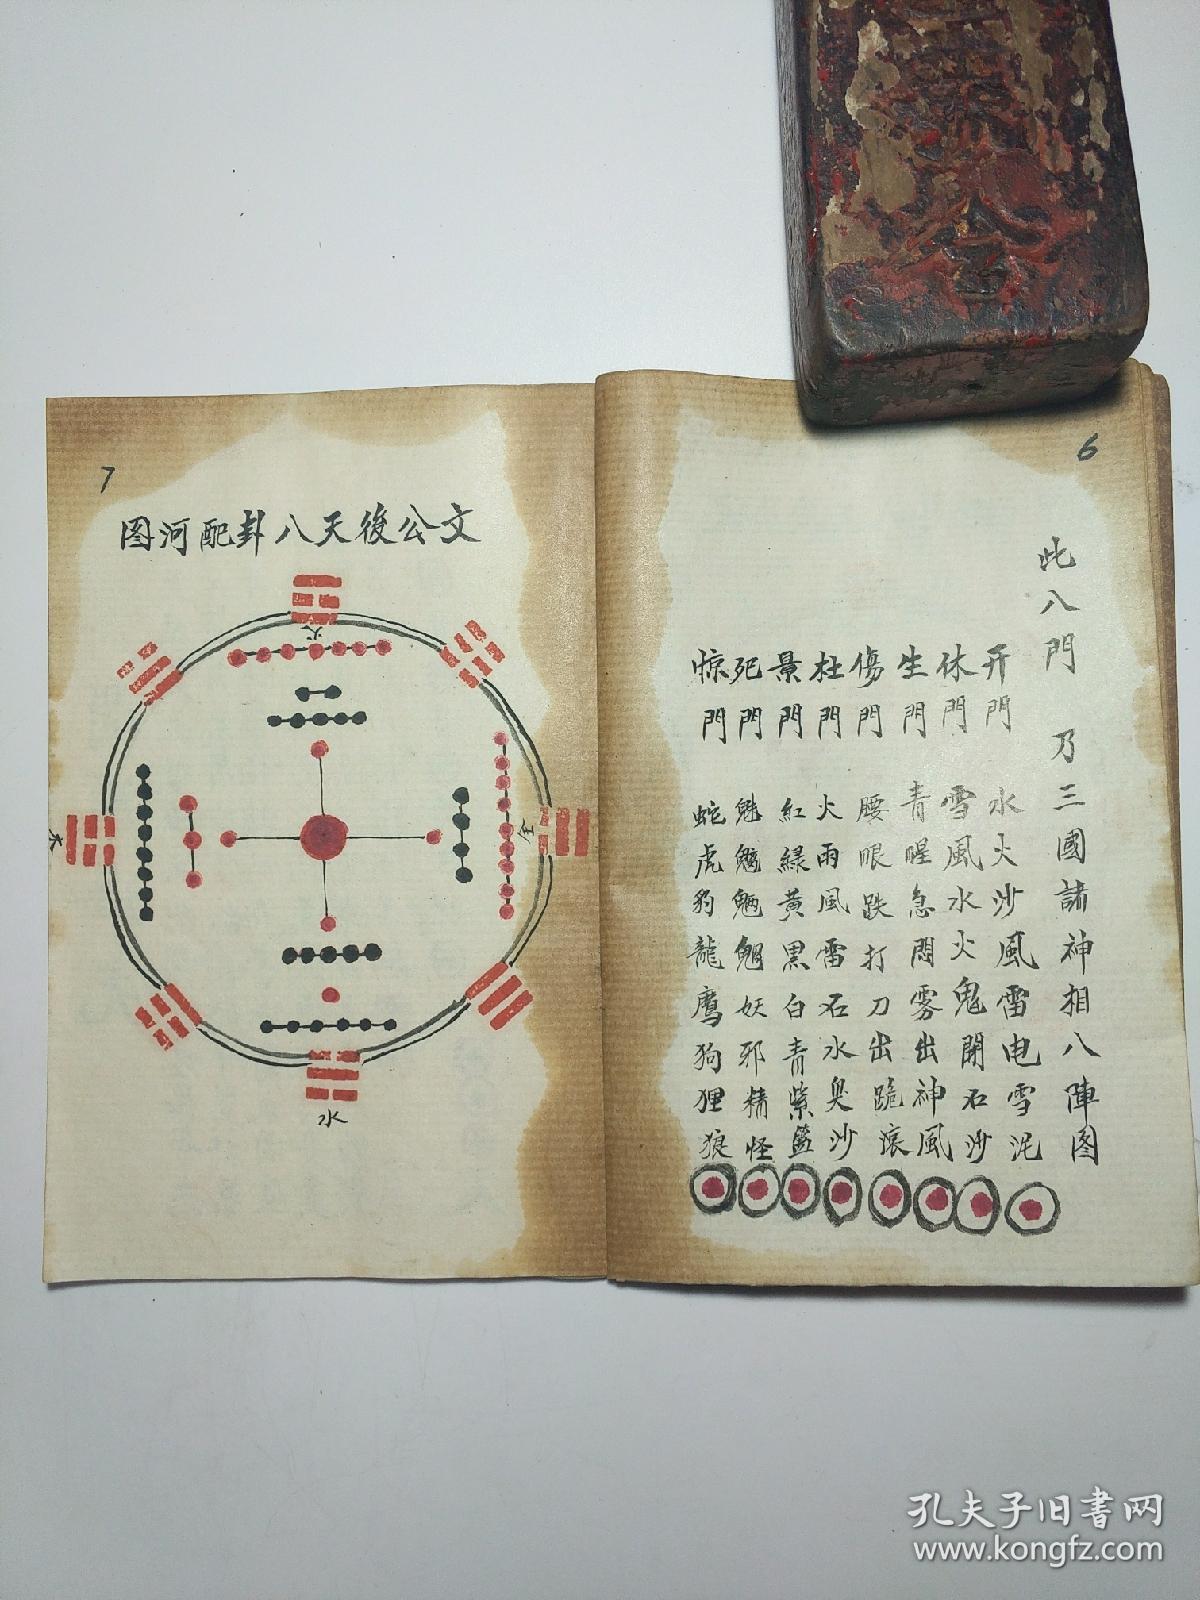 6
此八門 乃三國諸神相八陣图
开門 水火沙風雷电雪泥
休門 雪風水火鬼開石沙
生門 青腥急悶雾出神風
傷門 腰眼跌打刀出跪滚
杜門 火雨風雷石水臭沙
景門 紅綠黃黑白青紫蓝
死門 妖邪精怪
惊門 蛇虎豹龍鹰狗狸狼
7
文公後天八卦配河图
火
木
金
水
孔夫子旧書网
www.kongfz.com